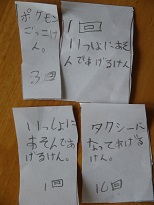 ポケモン
ごっこけ
ん。
3回
1回
いっしょにあそ
んであげるけん
いっしょに
あそんであ
げるけん。
1回
タクシーに
なってあげる
けん。
10回